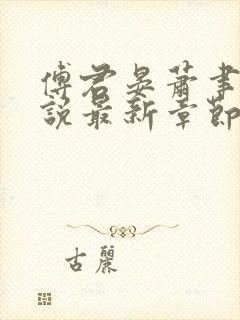 傅君晏蕭事
說最新章節
古麗